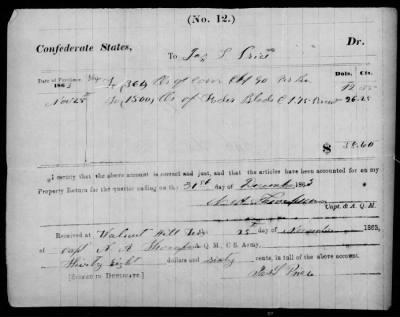 (No. 12.)
Confederate States,
To Jas L Price Dr.
Date of Purchase. Dolls. Cts.
186
Nov 25th To 1500 lbs of Foder Blades @ 1.75 26.25
$ 38.60
I certify that the above account is correct and just, and that the articles have been accounted for on my
Property Return for the quarter ending on the 31st day of December 1863
Capt. & A. Q. M.
Received at Walnut Hill 25 day of November 1863,
of Capt N A Thompson A. Q. M., C S. Army,
Thirty Eight dollars and sixty cents, in full of the above account.
[SIGNED IN DUPLICATE.] Jas L Price